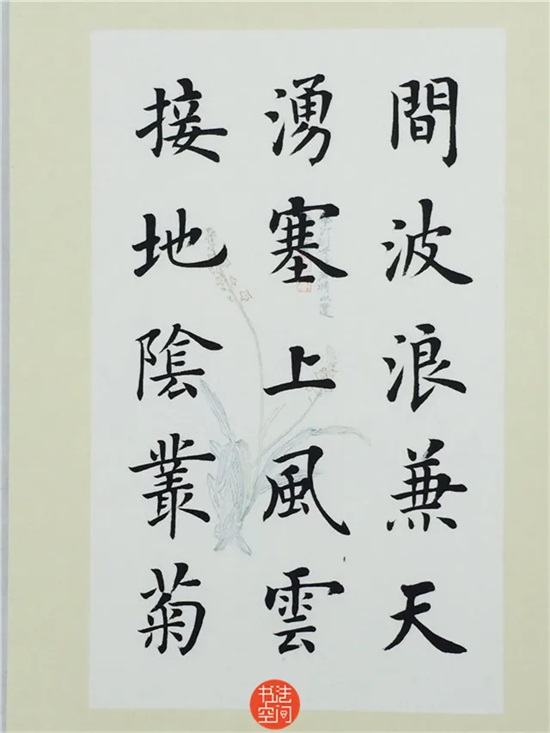 間波浪兼天
湧塞上風雲
接地陰叢菊
书法
空间